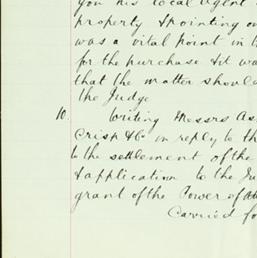 you his local Agent
property & pointing ou
was a vital point in t
for the purchase & it wa
that the matter shoul
the Judge
10. Writing Messrs As
Crisp & Co in reply to th
to the settlement of the
& application to the Ju
grant of the Power of At
Carried fo